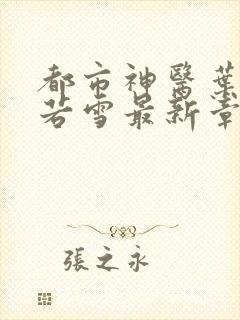 都市神醫葉
若雪最新章
張之永